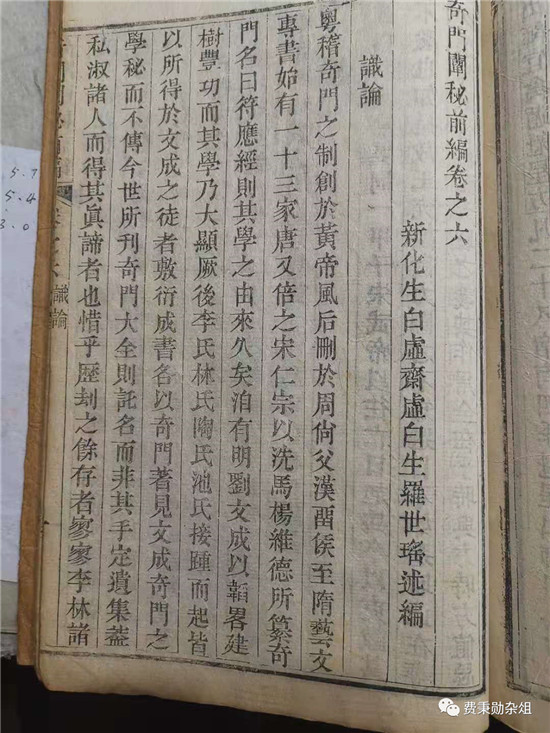 奇門闡秘前編卷之六
新化生白虛齋虛白生羅世瑤述編
識論
粵稽奇門之制創於黃帝風后刪於周尙父漢畱侯至隋藝文
專書始有一十三家唐又倍之宋仁宗以洗馬楊維德所纂奇
門名曰符應經則其學之由來久矣洎有明劉文成以韜畧建
樹豐功而其學乃大顯厥後李氏林氏陶氏池氏接踵而起皆
以所得於文成之徒者敷衍成書名以奇門著見文成奇門之
學秘而不傳今世所刊奇門大全則託名而非其手定遺集蓋
私淑諸人而得其眞諦者也惜乎歷刼之餘存者寥寥李林諸
識論
5.7
5.4
3.0
费秉勋杂俎